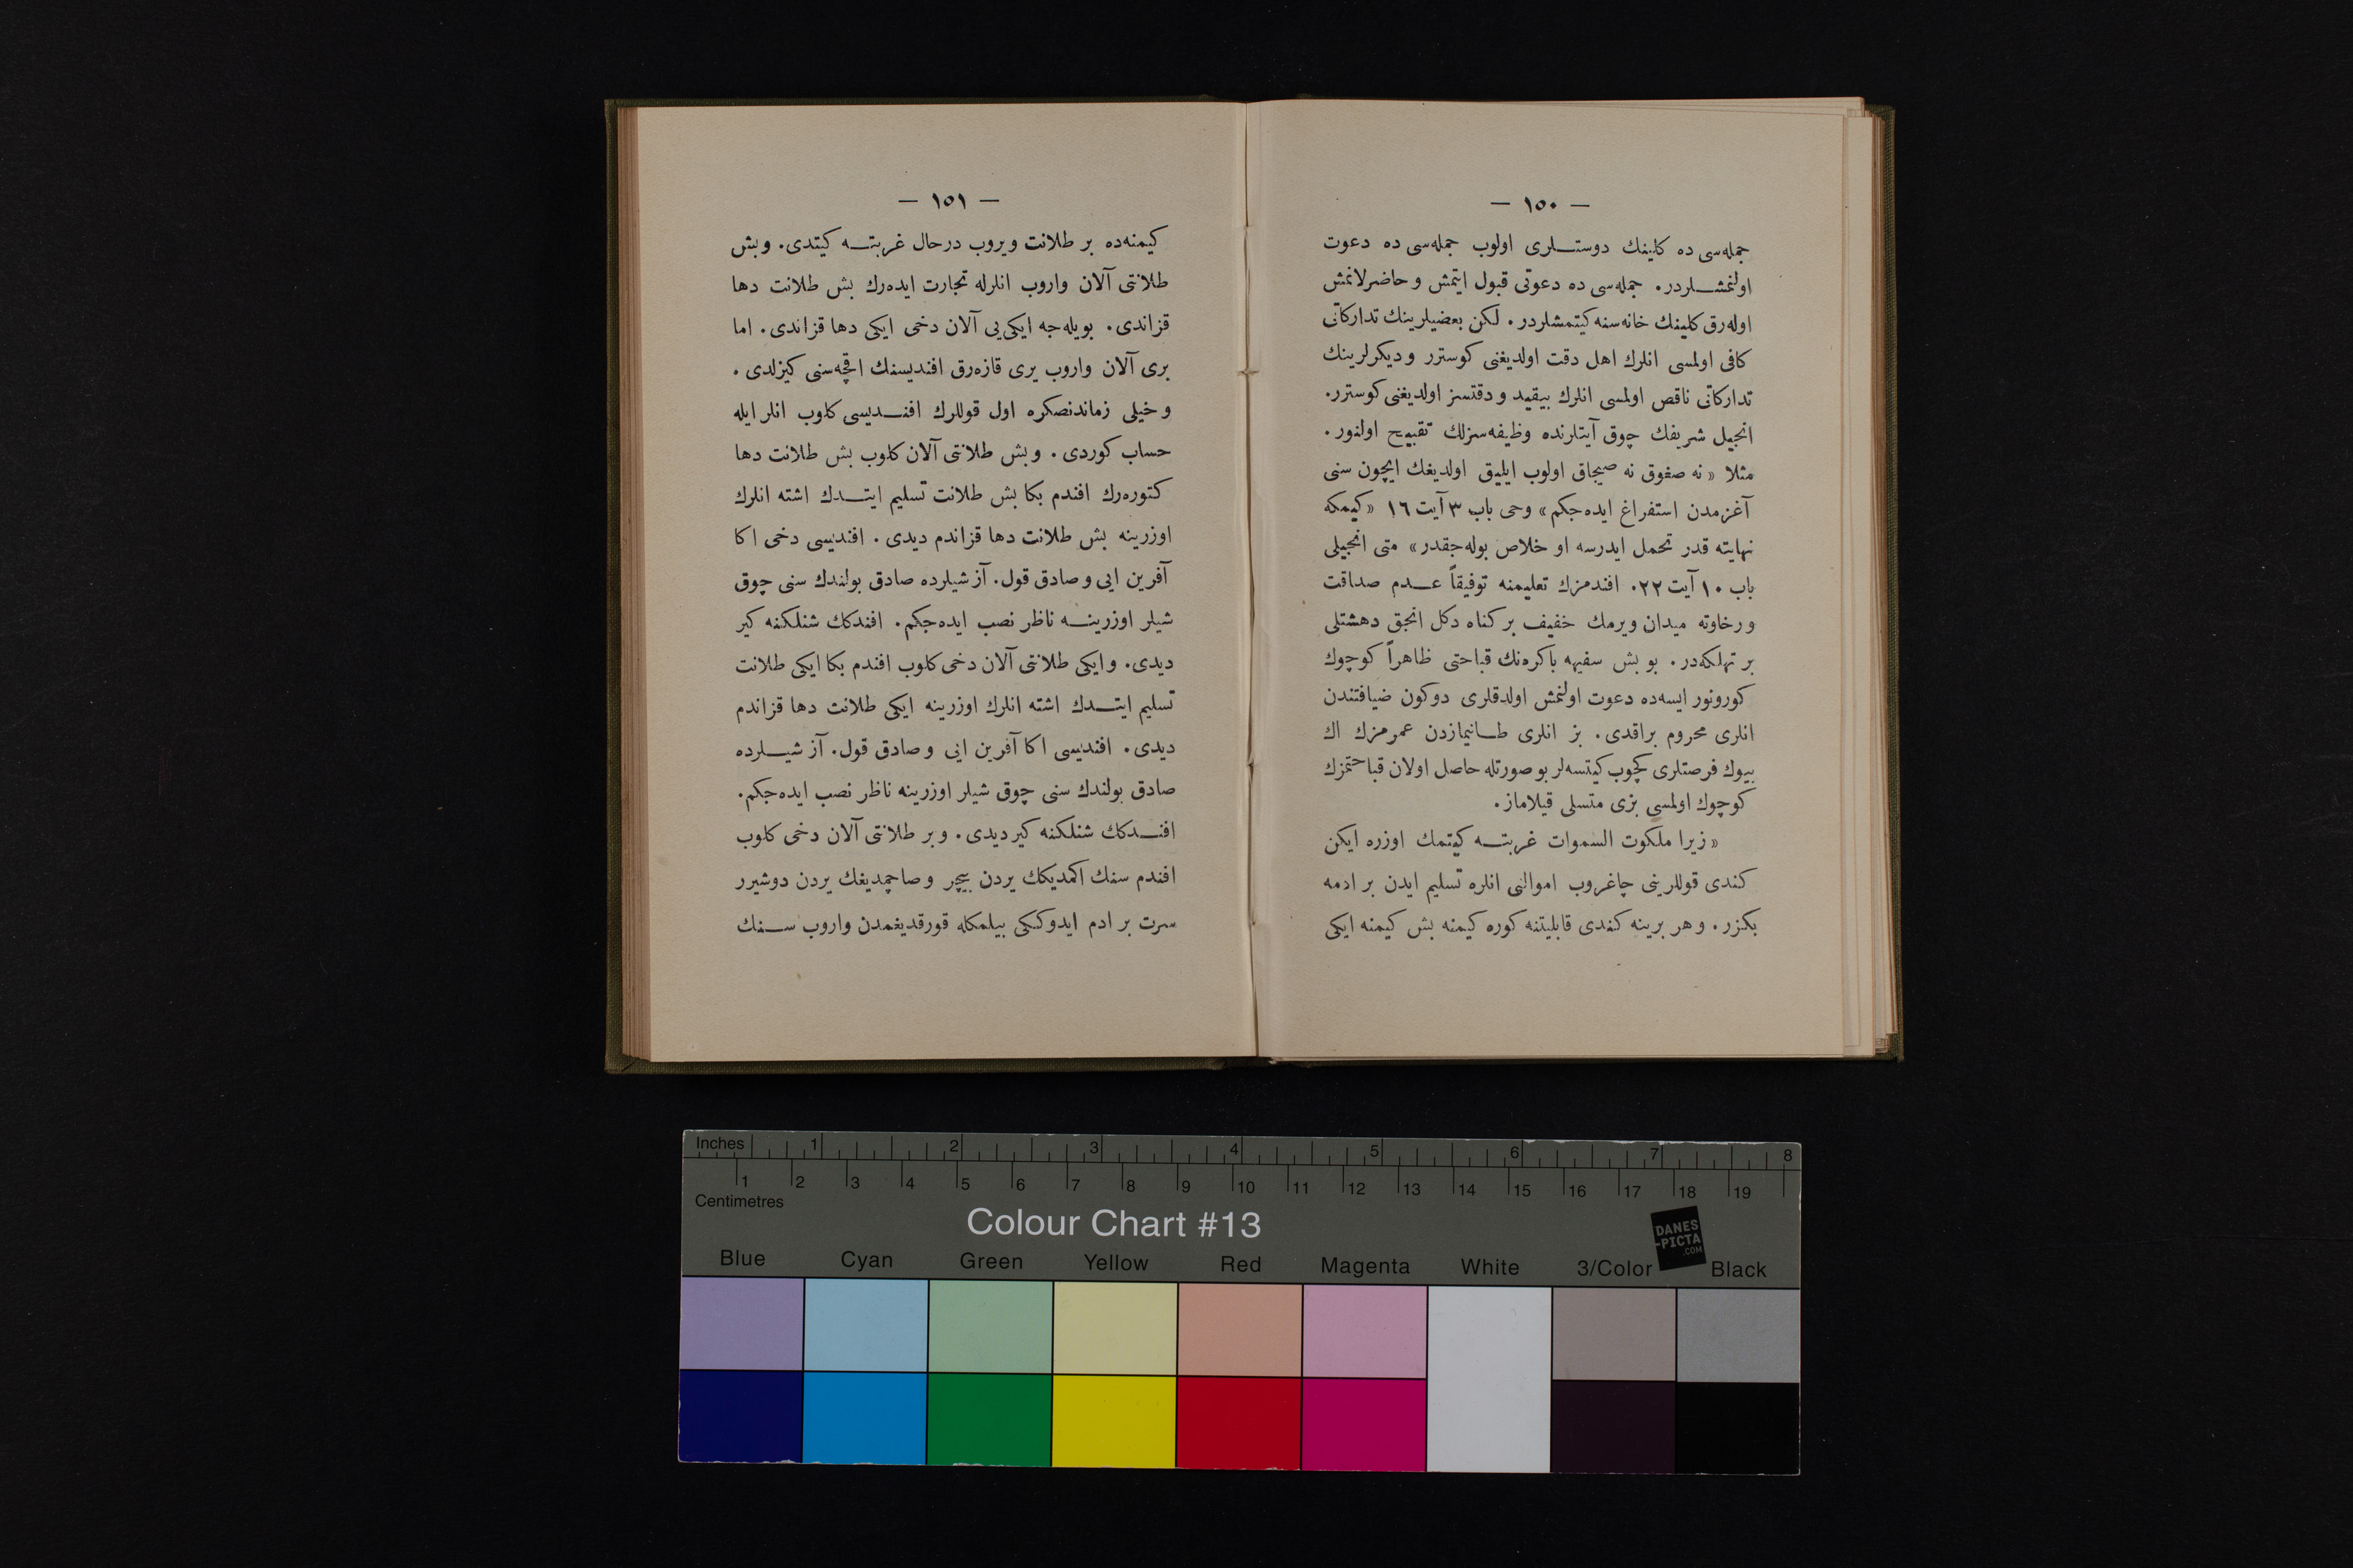 — ١٥٠ —
جمله‌سی ده كلینك دوستلری اولوب جمله‌سی ده دعوت
اولنمشلردر. جمله‌سی ده دعوتی قبول ایتمش و حاضرلانمش
اوله‌رق كلینك خانه‌سنه كیتمشلردر. لكن بعضیلرینك تداركاتی
كافی اولمسی انلرك اهل دقت اولدیغنی كوسترر و دیكرلرینك
تداركاتی ناقص اولمسی انلرك بیقید و دقتسز اولدیغنی كوسترر.
انجیل شریفك چوق آیتلرنده وظیفه‌سزلك تقبیح اولنور.
مثلا « نه صغوق نه صیجاق اولوب ایلیق اولدیغك ایچون سنی
آغزمدن استفراغ ایده‌جكم» وحی باب ٣ آیت ١٦ «كیمكه
نهایته قدر تحمل ایدرسه او خلاص بوله‌جقدر» متی انجیلی
باب ١٠ آیت ٢٢. افندمزك تعلیمنه توفیقاً عدم صداقت
و رخاوته میدان ویرمك خفیف بر كناه دكل انجق دهشتلی
بر تهلكه‌در. بو بش سفیهه باكره‌نك قباحتی ظاهراً كوچوك
كورونور ایسه‌ده دعوت اولنمش اولدقلری دوكون ضیافتندن
انلری محروم براقدی. بز انلری طانیمازدن عمرمزك اك
بیوك فرصتلری كچوب كیتسه‌لر بو صورتله حاصل اولان قباحتمزك
كوچوك اولمسی بزی متسلی قیلاماز.
« زیرا ملكوت السموات غربته كیتمك اوزره ایكن
كندی قوللرینی چاغروب اموالنی انلره تسلیم ایدن بر ادمه
بكزر. و هر برینه كندی قابلیتنه كوره كیمنه بش كیمنه ایكی
— ١٥١ —
كیمنه‌ده بر طلانت ویروب درحال غربته كیتدی. و بش
طلانتی آلان واروب انلرله تجارت ایده‌رك بش طلانت دها
قزاندی. بویله‌جه ایكی‌یی آلان دخی ایكی دها قزاندی. اما
بری آلان واروب یری قازه‌رق افندیسنك اقچه‌سنی كیزلدی.
و خیلی زماندنصكره اول قوللرك افندیسی كلوب انلر ایله
حساب كوردی. و بش طلانتی آلان كلوب بش طلانت دها
كتوره‌رك افندم بكا بش طلانت تسلیم ایتدك اشته انلرك
اوزرینه بش طلانت دها قزاندم دیدی. افندیسی دخی اكا
آفرین ایی و صادق قول. آز شیلرده صادق بولندك سنی چوق
شیلر اوزرینه ناظر نصب ایده‌جكم. افندكك شنلكنه كیر
دیدی. و ایكی طلانتی آلان دخی كلوب افندم بكا ایكی طلانت
تسلیم ایتدك اشته انلرك اوزرینه ایكی طلانت دها قزاندم
دیدی. افندیسی اكا آفرین ایی و صادق قول. آز شیلرده
صادق بولندك سنی چوق شیلر اوزرینه ناظر نصب ایده‌جكم.
افندكك شنلكنه كیر دیدی. و بر طلانتی آلان دخی كلوب
افندم سنك اكمدیكك یردن بیچر و صاچمدیغك یردن دوشیرر
سرت بر ادم ایدوككی بیلمكله قورقدیغمدن واروب سنك
Inches 1 2 3 4 5 6 7 8
1 2 3 4 5 6 7 8 9 10 11 12 13 14 15 16 17 18 19
Centimetres
Colour Chart #13
DANES
-PICTA
.COM
Blue Cyan Green Yellow Red Magenta White 3/Color Black